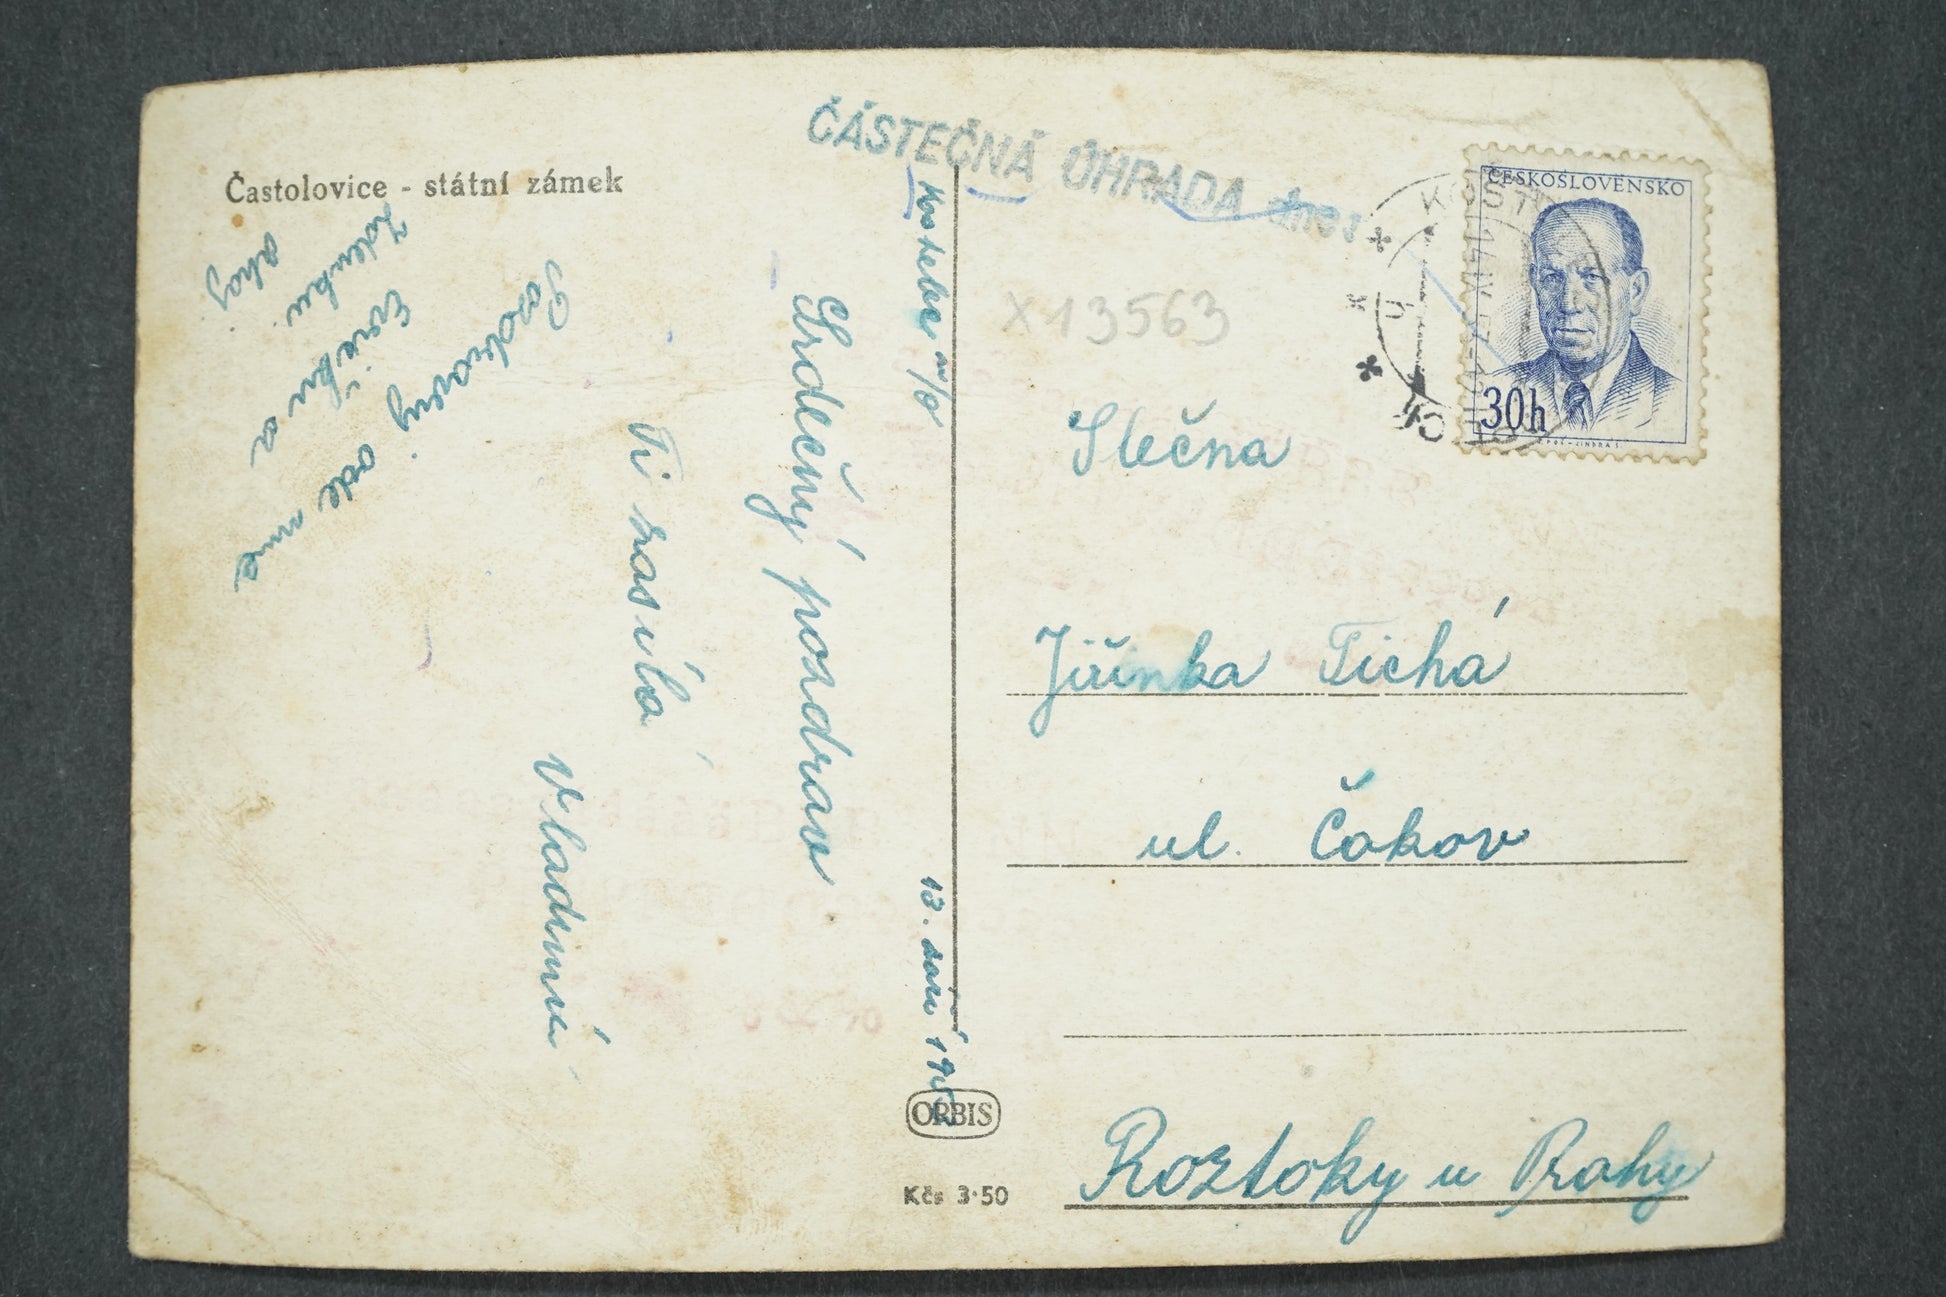 Častolovice - státní zámek
ČÁSTEČNÁ ÚHRADA dnes
Kostelec n/O
13. září 19
Srdečný pozdrav
Ti zasílá
Vladimír
Pozdravuj ode mne
Evičku a
Zdenku.
ahoj
X13563
ČESKOSLOVENSKO
30h
Slečna
Jiřinka Tichá
ul. Čakov
Roztoky u Prahy
ORBIS
Kčs 3·50